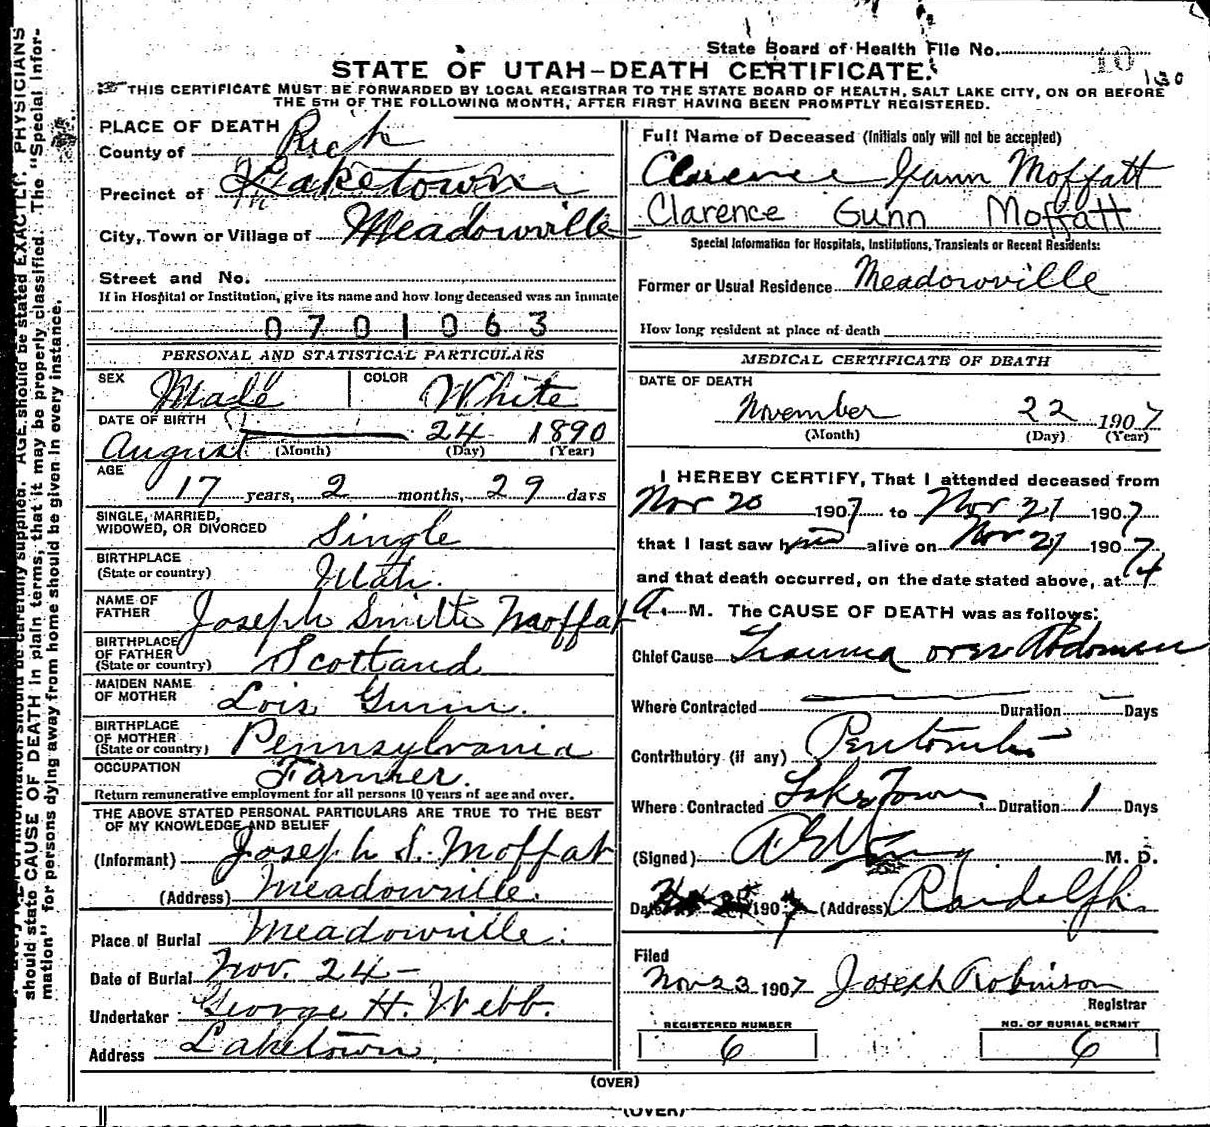 State Board of Health File No. 10
160
STATE OF UTAH–DEATH CERTIFICATE.
THIS CERTIFICATE MUST BE FORWARDED BY LOCAL REGISTRAR TO THE STATE BOARD OF HEALTH, SALT LAKE CITY, ON OR BEFORE
THE 5TH OF THE FOLLOWING MONTH, AFTER FIRST HAVING BEEN PROMPTLY REGISTERED.
PLACE OF DEATH
County of Rich
Precinct of Laketown
City, Town or Village of Meadowville
Street and No.
If in Hospital or Institution, give its name and how long deceased was an inmate
0701063
PERSONAL AND STATISTICAL PARTICULARS
SEX Male COLOR White
DATE OF BIRTH
August 24 1890
(Month) (Day) (Year)
AGE
17 years, 2 months, 29 days
SINGLE, MARRIED,
WIDOWED, OR DIVORCED Single
BIRTHPLACE
(State or country) Utah.
NAME OF
FATHER Joseph Smith Moffat
BIRTHPLACE
OF FATHER
(State or country) Scotland
MAIDEN NAME
OF MOTHER Lois Gunn.
BIRTHPLACE
OF MOTHER
(State or country) Pennsylvania
OCCUPATION Farmer.
Return remunerative employment for all persons 10 years of age and over.
THE ABOVE STATED PERSONAL PARTICULARS ARE TRUE TO THE BEST
OF MY KNOWLEDGE AND BELIEF
(Informant) Joseph S. Moffat
(Address) Meadowville.
Place of Burial Meadowville.
Date of Burial Nov. 24–
Undertaker George H. Webb.
Address Laketown.
Full Name of Deceased (Initials only will not be accepted)
Clarence Gunn Moffatt
Clarence Gunn Moffatt
Special Information for Hospitals, Institutions, Transients or Recent Residents:
Former or Usual Residence Meadowville
How long resident at place of death
MEDICAL CERTIFICATE OF DEATH
DATE OF DEATH
November 22 1907
(Month) (Day) (Year)
I HEREBY CERTIFY, That I attended deceased from
Nov 20 1907 to Nov 21 1907
that I last saw him alive on Nov 21 1907
and that death occurred, on the date stated above, at 4
A. M. The CAUSE OF DEATH was as follows:
Chief Cause Trauma over Abdomen
Where Contracted Duration Days
Contributory (if any)
Where Contracted Lake Town Duration 1 Days
(Signed) M. D.
Date 1907 (Address) Randolph
Filed
Nov 23 1907 Joseph Robinson
Registrar
REGISTERED NUMBER
6
NO. OF BURIAL PERMIT
6
(OVER)
(OVER)
should state CAUSE OF DEATH in plain terms, that it may be properly classified. The "Special Infor-
mation" for persons dying away from home should be given in every instance.